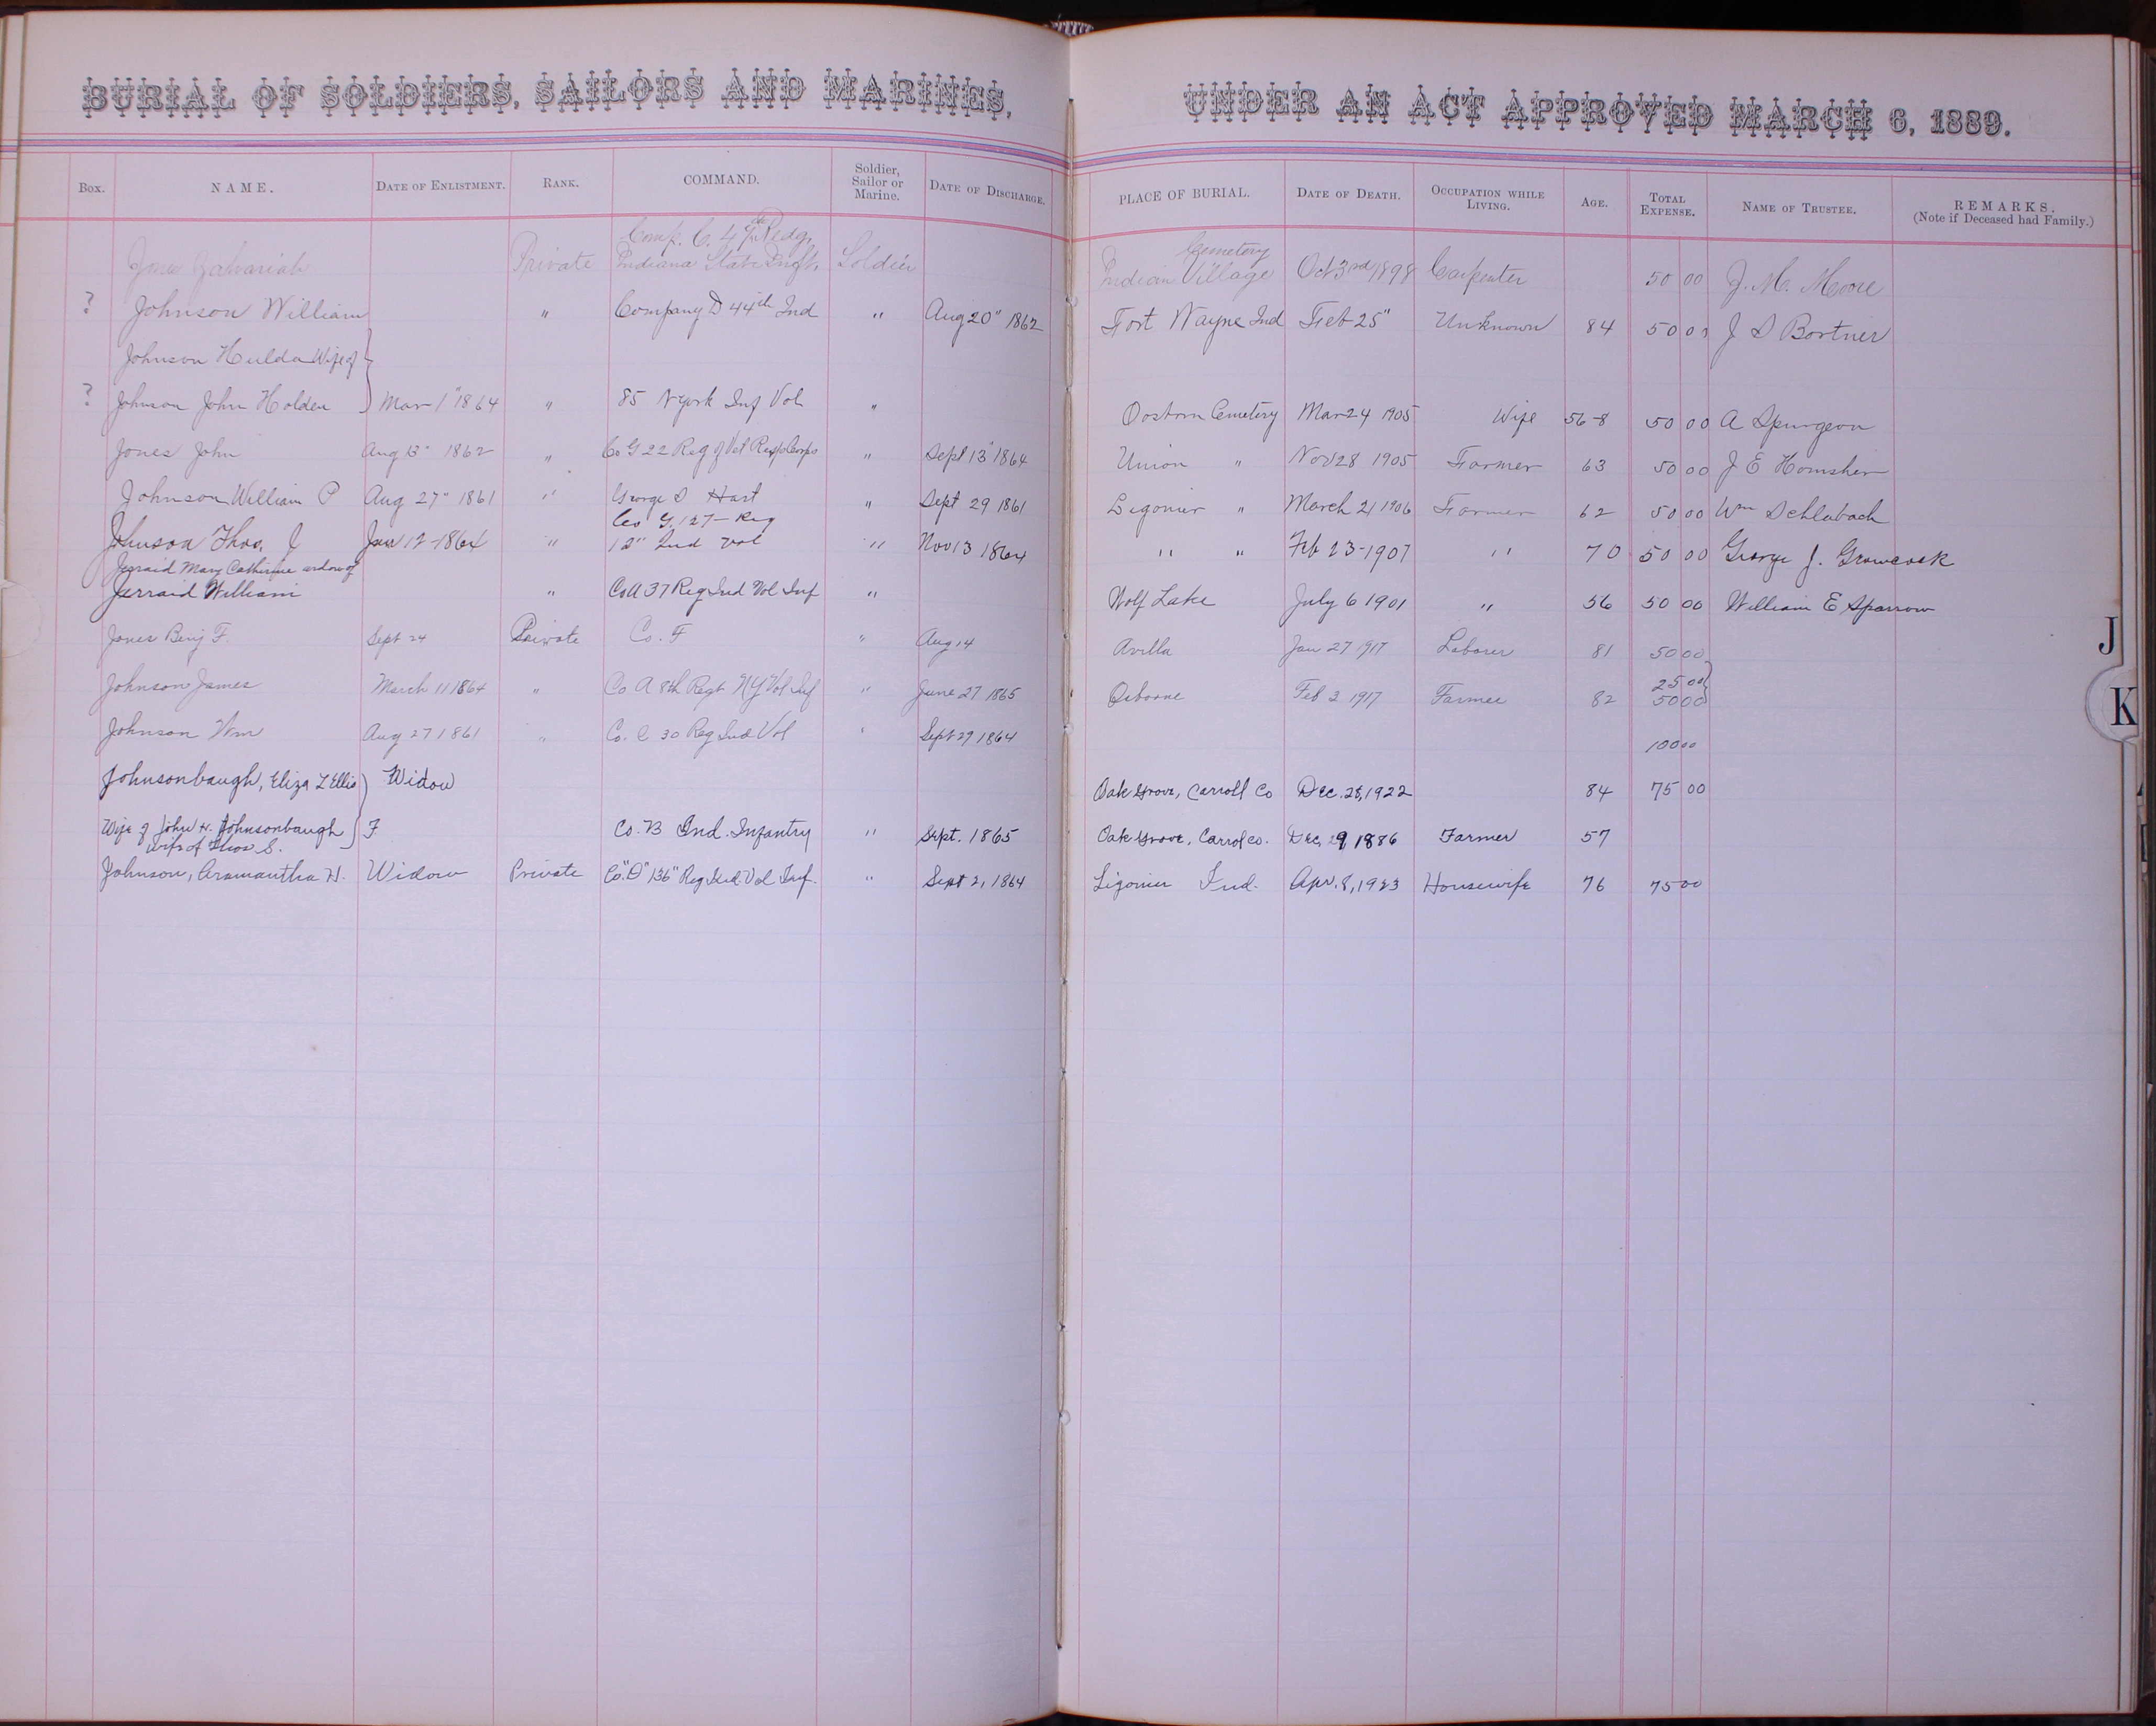 BURIAL OF SOLDIERS, SAILORS AND MARINES, UNDER AN ACT APPROVED MARCH 6, 1889.
Box. NAME. DATE OF ENLISTMENT. RANK. COMMAND. Soldier, Sailor or Marine. DATE OF DISCHARGE. PLACE OF BURIAL. DATE OF DEATH. OCCUPATION WHILE LIVING. AGE. TOTAL EXPENSE. NAME OF TRUSTEE. REMARKS. (Note if Deceased had Family.)
Comp. C. 4 Cemetery
Jones Zachariah Private Indiana State Soldier Indian Village Oct 3rd 1898 Carpenter 50 00 J. M. Moore
? Johnson William " Company D 44th Ind " Aug 20" 1862 Fort Wayne Ind Feb 25" Unknown 84 50 00 J D Bortner
Johnson Hulda Wife of
? Johnson John Holden Mar 1" 1864 " 85 N York Inf Vol " Cemetery Mar 24 1905 Wife 56-8 50 00 A Spurgeon
Jones John Aug 13" 1862 " Co G 22 Reg of Vet Corps " Sept 13" 1864 Union " Nov 28 1905 Farmer 63 50 00 J E Homsher
Johnson William P Aug 27" 1861 " George D Hart " Sept 29 1861 Ligonier " March 21 1906 Farmer 62 50 00 Wm Schlabach
Co G, 127- Reg
Johnson Thos. J Jan 12-1864 " 12" Ind vol " Nov 13 1864 " " Feb 23-1907 " 70 50 00 George J. Growcock
Jerraid Mary Catherine widow of
Jerraid William " Co A 37 Reg Ind Vol Inf " Wolf Lake July 6 1901 " 56 50 00 William E Sparrow
Jones Benj F. Sept 24 Private Co. F " Aug 14 Avilla Jan 27 1917 Laborer 81 50 00
25 00
Johnson James March 11 1864 " Co A 8th Regt NY Vol Inf " June 27 1865 Osborne Feb 2 1917 Farmer 82 50 00
Johnson Wm Aug 27 1861 " Co. C 30 Reg Ind Vol " Sept 29 1864 100 00
Johnsonbaugh, Eliza L Ellis Widow Oak Grove, Carroll Co Dec. 28, 1922 84 75 00
Wife of John H. Johnsonbaugh F Co. B Ind. Infantry " Sept. 1865 Oak Grove, Carrol co. Dec. 29 1886 Farmer 57
wife of Thos S.
Johnson, Aramantha H. Widow Private Co. "D" 136" Reg Ind. Vol Inf. " Sept 2, 1864 Ligonier Ind. Apr. 8, 1923 Housewife 76 75 00
J
K